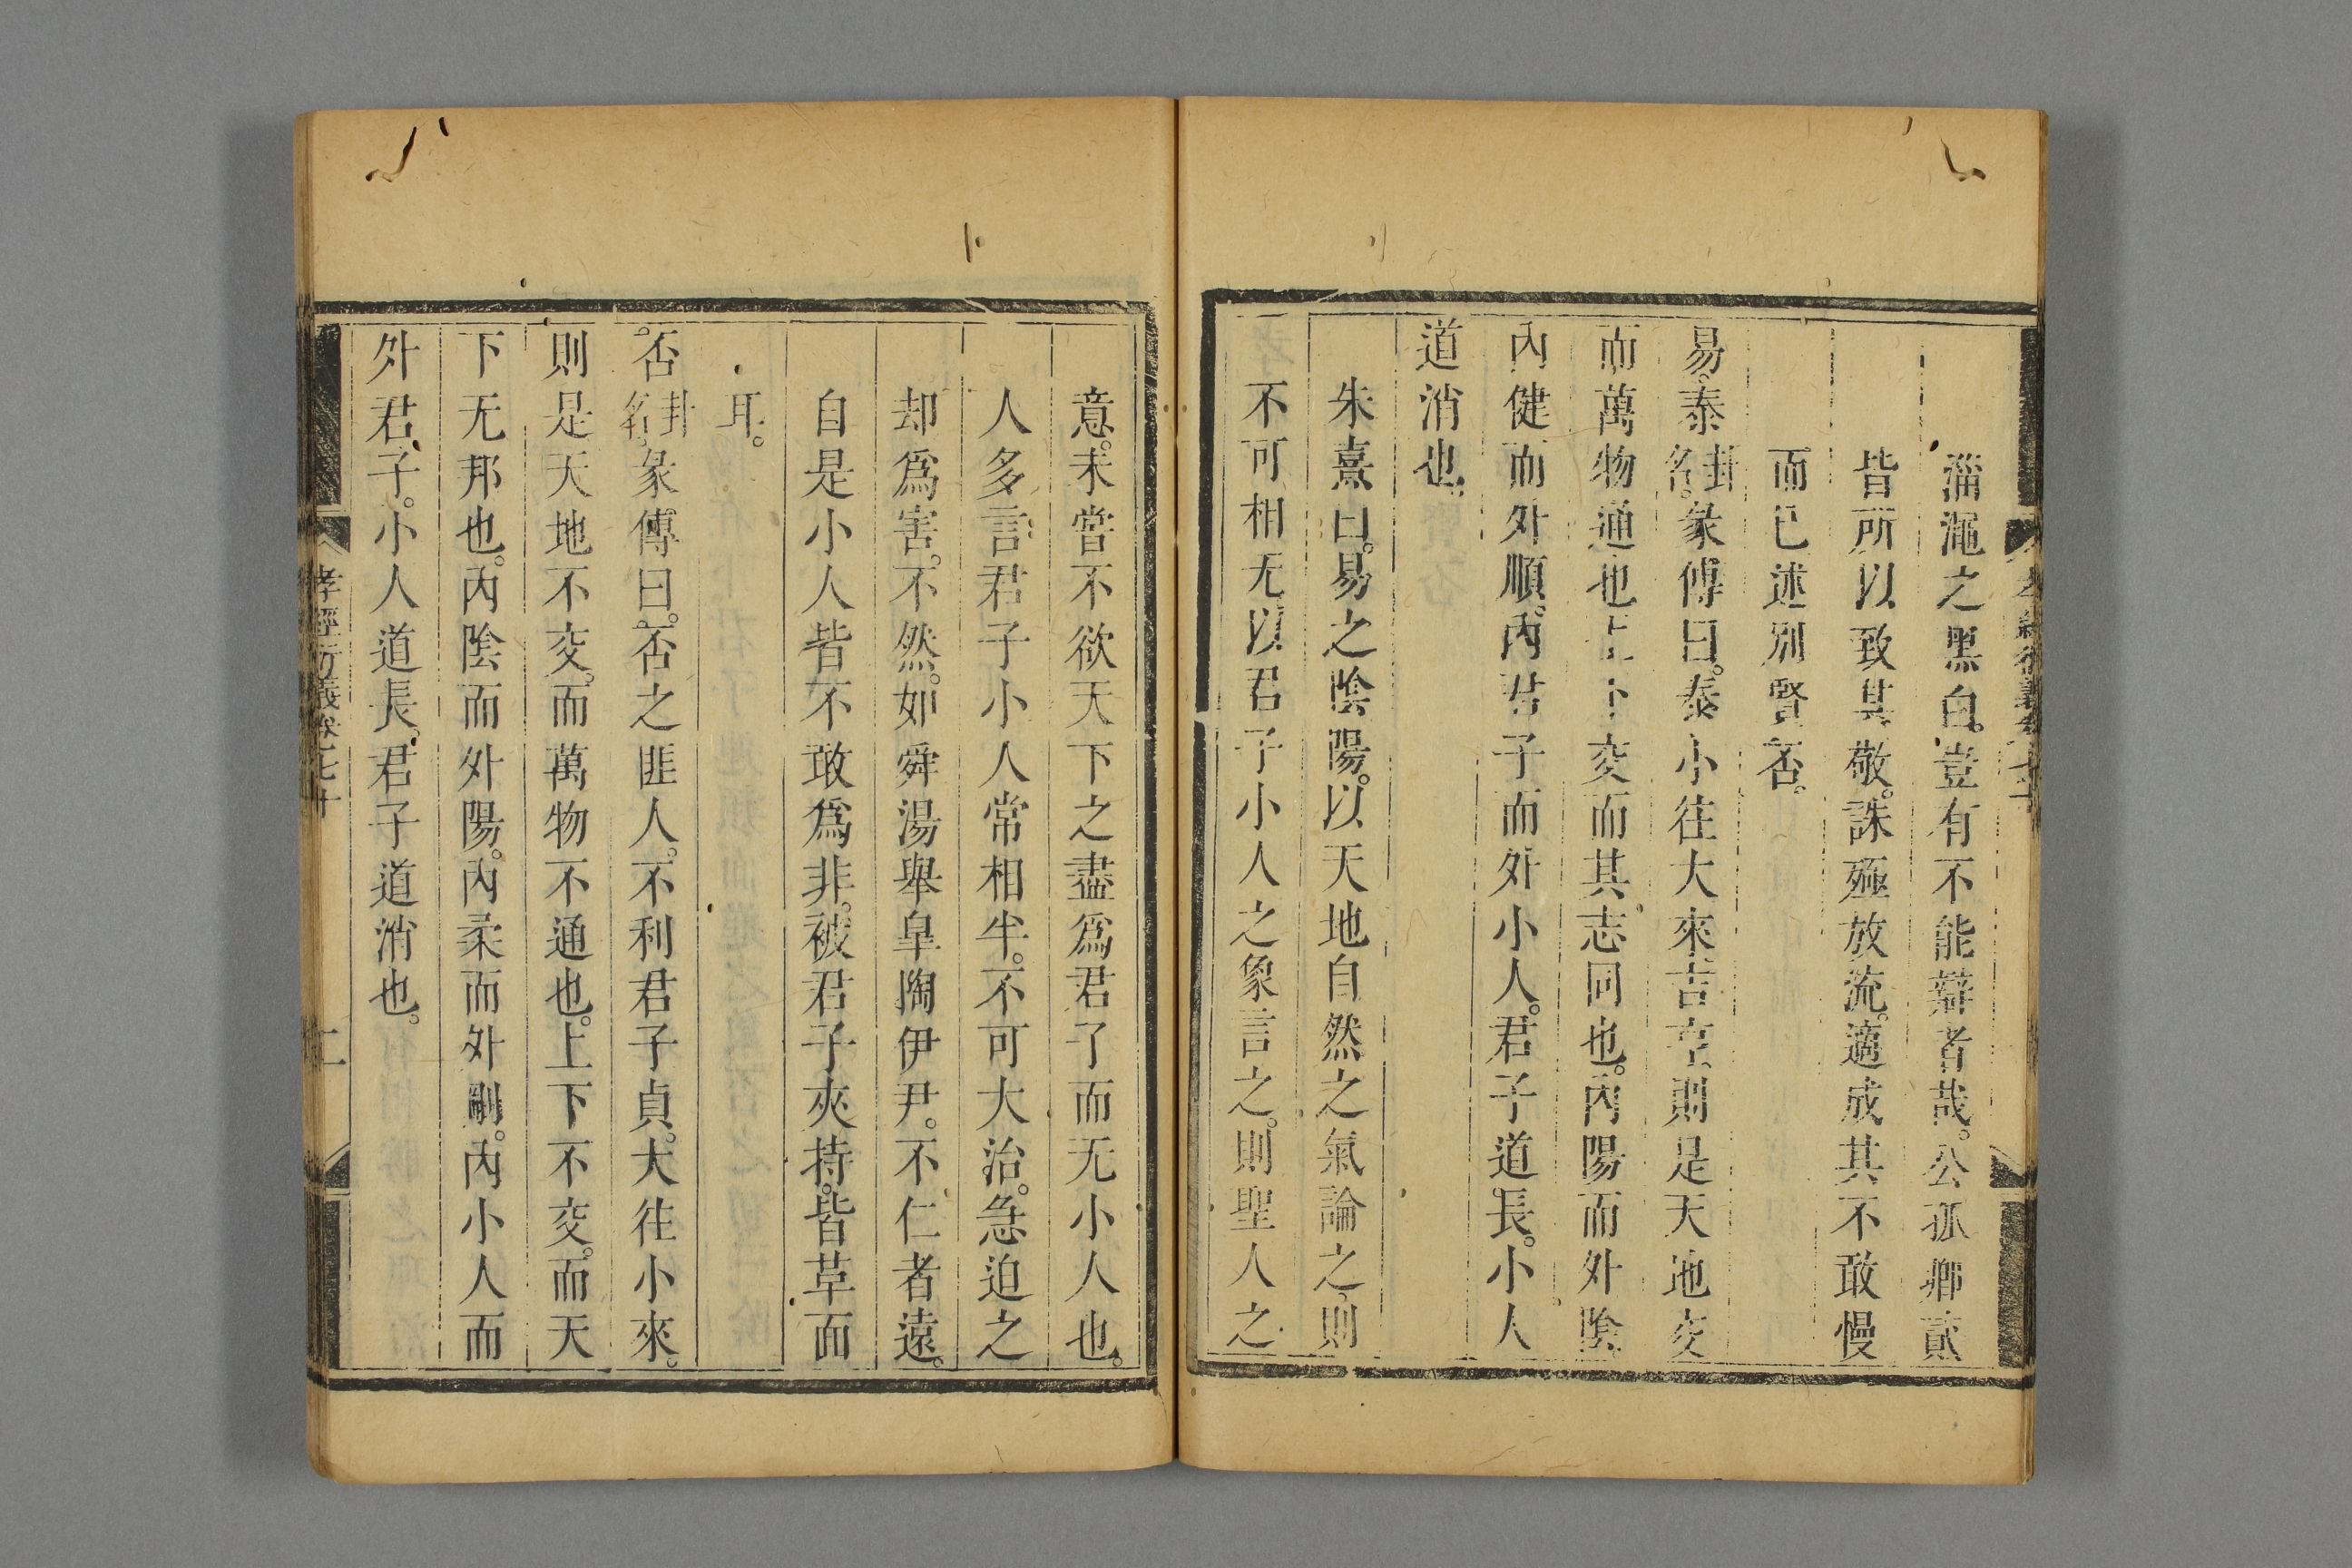 淄澠之黑白。豈有不能辯者哉。公孤卿貳
皆所以致其敬。誅殛放流。適成其不敢慢
而已述別賢否。
易。泰卦名。彖傳曰。泰小往大來吉亨。則是天地交
而萬物通也上下交而其志同也。內陽而外陰
內健而外順。內君子而外小人。君子道長。小人
道消也。
朱熹曰。易之陰陽。以天地自然之氣論之。則
不可相无以君子小人之象言之。則聖人之
意。未嘗不欲天下之盡爲君子而无小人也。
人多言君子小人常相半。不可大治。急迫之
却爲害。不然。如舜湯舉皐陶伊尹。不仁者遠。
自是小人皆不敢爲非。被君子夾持。皆草面
耳。
否卦名彖傳曰。否之匪人。不利君子貞。大往小來。
則是天地不交。而萬物不通也。上下不交。而天
下无邦也。內陰而外陽。內柔而外剛。內小人而
外君子。小人道長。君子道消也。
孝經衍義卷七十
二